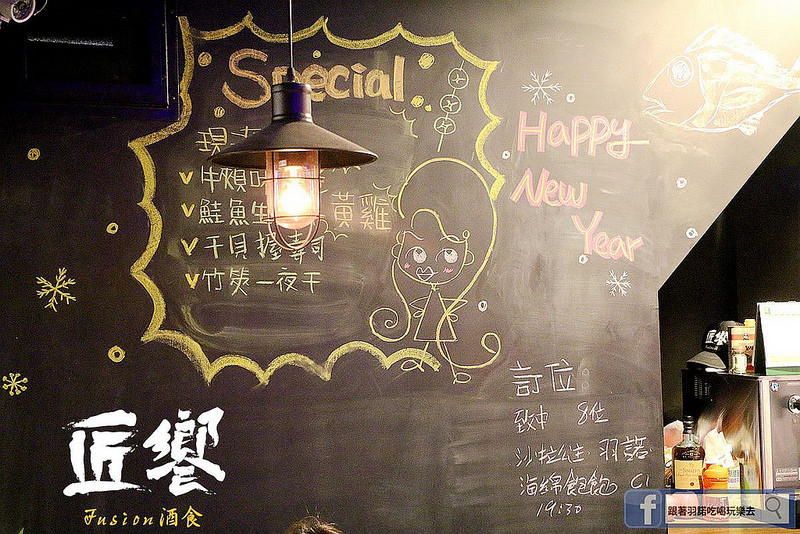 Special
Happy
New
Year
現
牛頰
鮭魚生 黃雞
干貝握壽司
竹筴一夜干
訂位
致中 8位
沙拉公主 羽諾
海綿飽飽 C1
19:30
匠饗
匠饗
Fusion酒食
跟著羽諾吃喝玩樂去